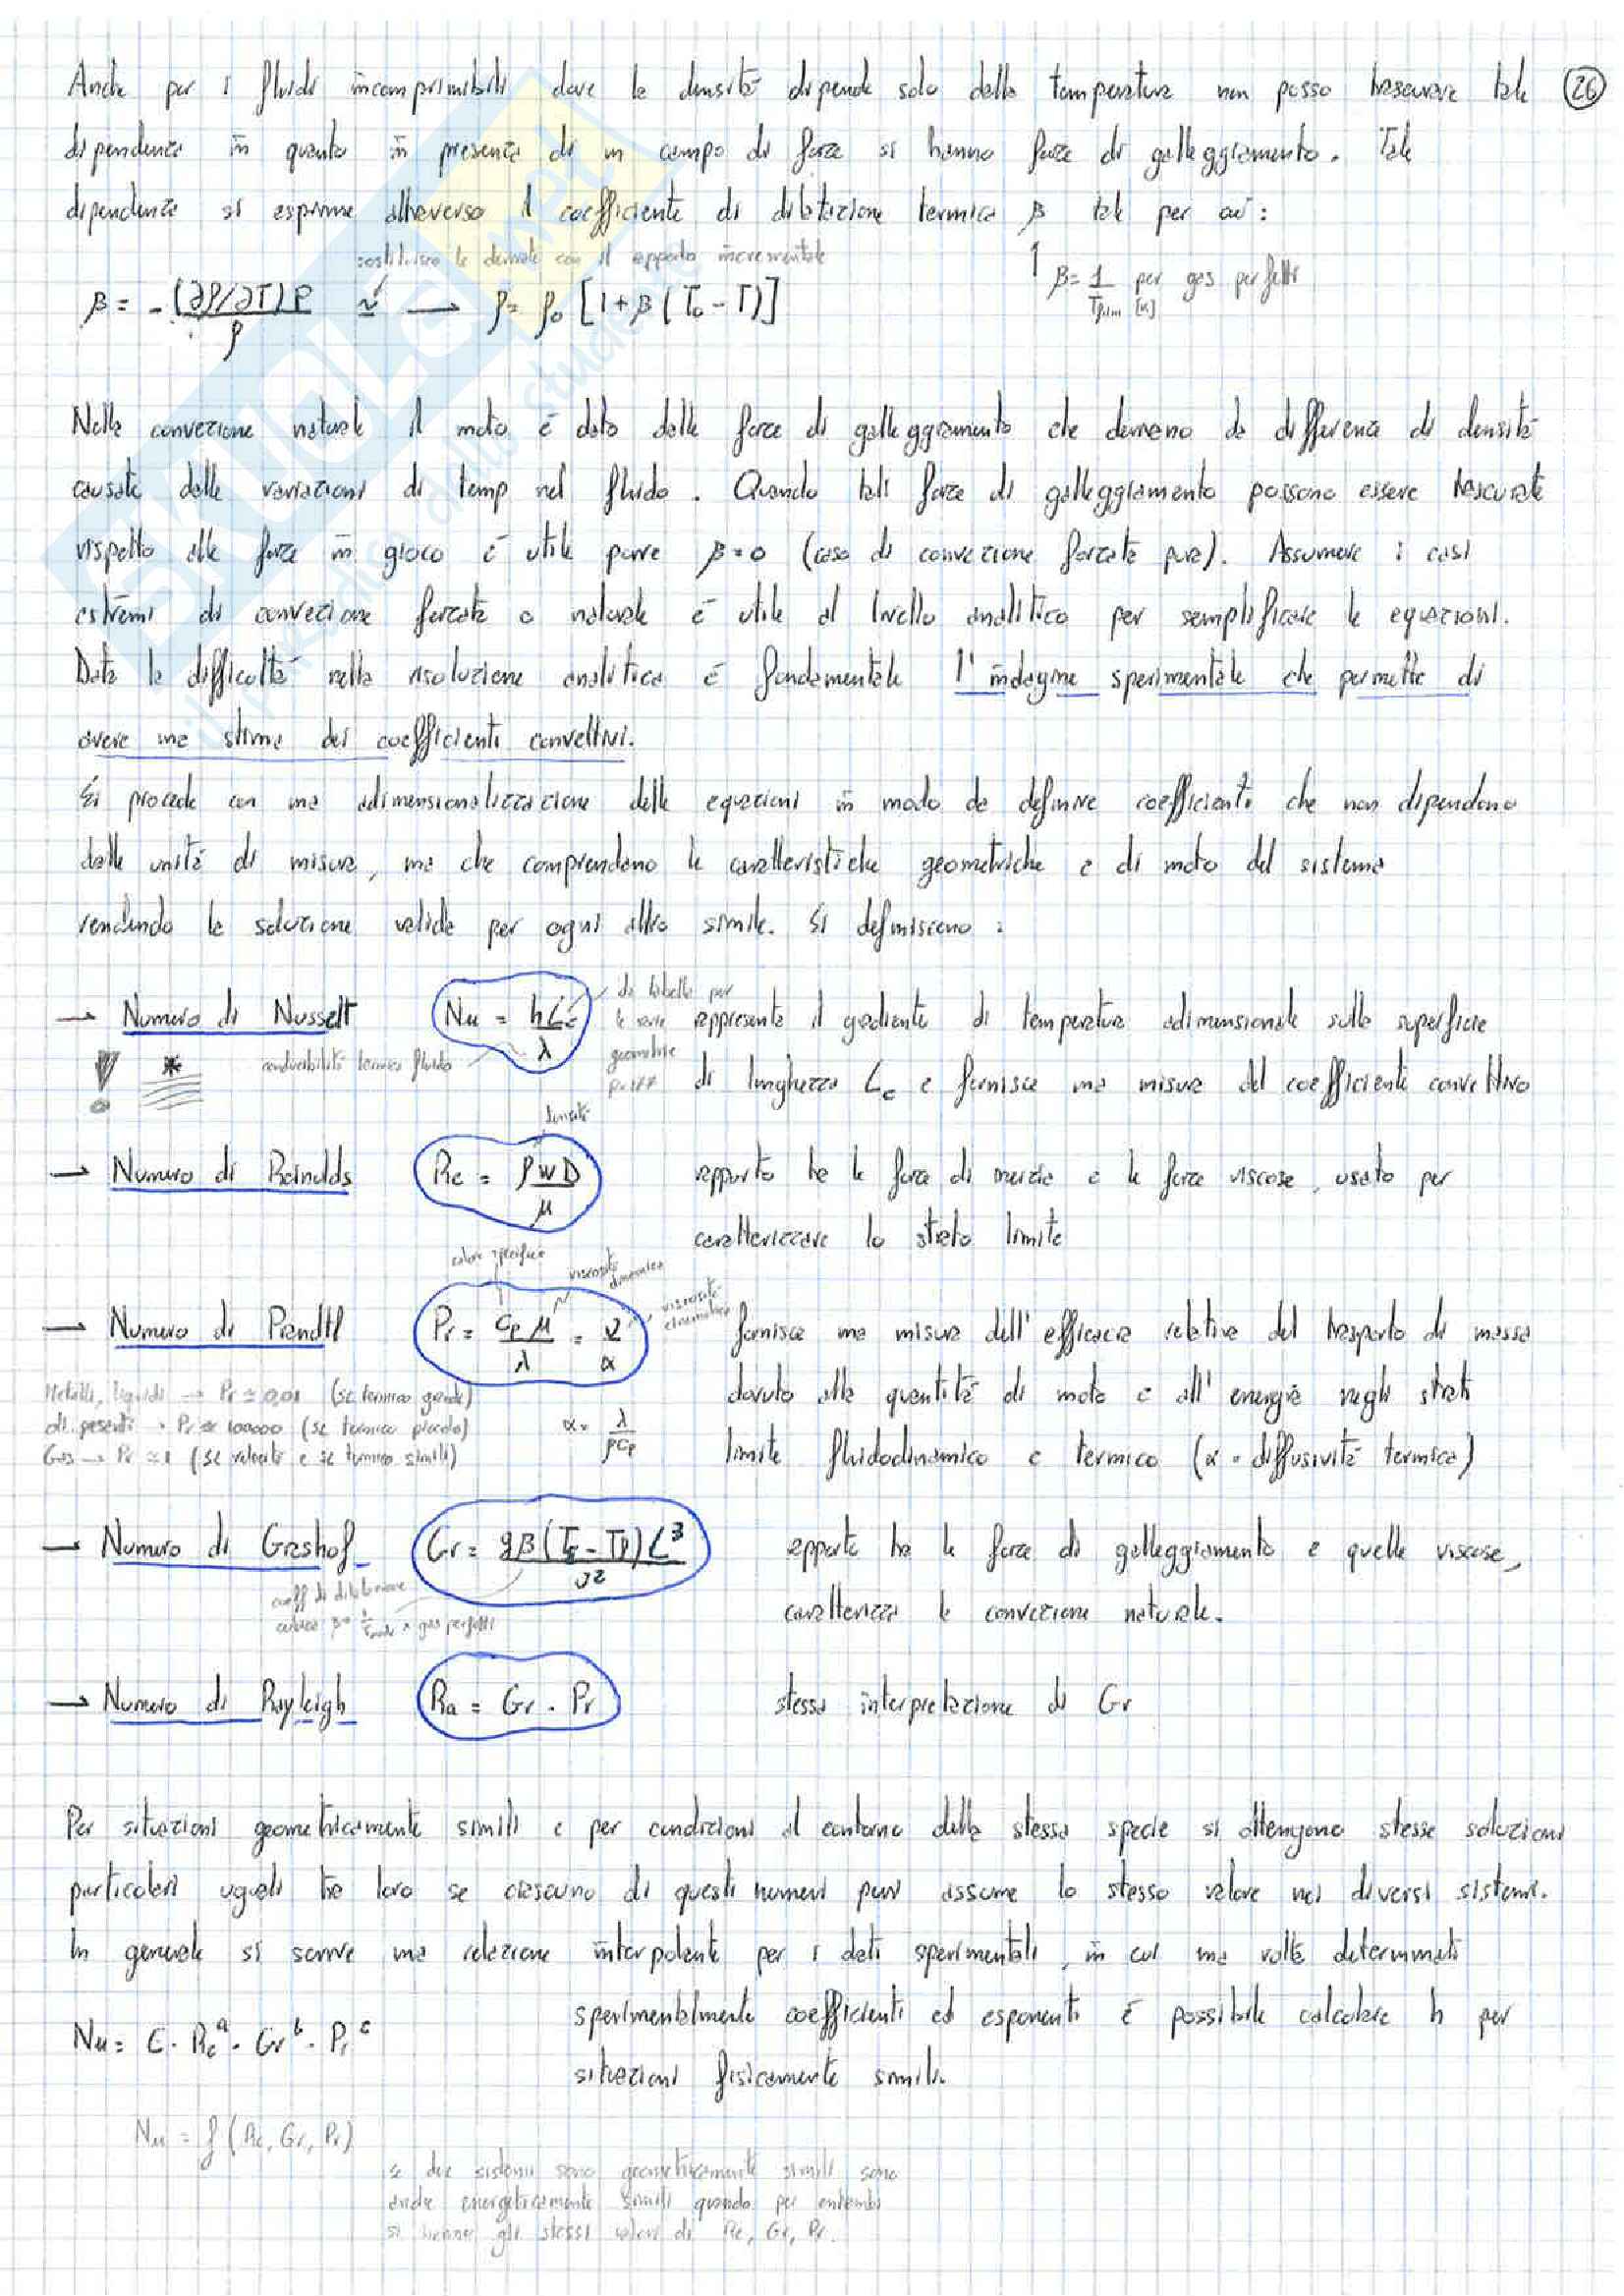 Anche per i fluidi incomprimibili dove la densità dipende solo dalla temperatura non posso trascurare tale 26
dipendenza in quanto in presenza di un campo di forze si hanno forze di galleggiamento. Tale
dipendenza si esprime attraverso il coefficiente di dilatazione termica β tale per cui:
sostituisco le derivate con il rapporto incrementale
↑ β = 1/Tfilm [K] per gas perfetti
β = - (∂ρ/∂T)P / ρ ≃ → ρ = ρ0 [1 + β (T0 - T)]
Nella convezione naturale il moto è dato dalle forze di galleggiamento che derivano da differenza di densità
causate dalle variazioni di temp nel fluido. Quando tali forze di galleggiamento possono essere trascurate
rispetto alle forze in gioco è utile porre β = 0 (caso di convezione forzata pura). Assumere i casi
estremi di convezione forzata o naturale è utile al livello analitico per semplificare le equazioni.
Data la difficoltà nella risoluzione analitica è fondamentale l'indagine sperimentale che permette di
avere una stima dei coefficienti convettivi.
Si procede con una adimensionalizzazione delle equazioni in modo da definire coefficienti che non dipendono
dalle unità di misura, ma che comprendano le caratteristiche geometriche e di moto del sistema
rendendo la soluzione valida per ogni altro simile. Si definiscono:
→ Numero di Nusselt Nu = hLc / λ da tabelle per le varie geometrie rappresenta il gradiente di temperatura adimensionale sulla superficie
! * conducibilità termica fluido di lunghezza Lc e fornisce una misura del coefficiente convettivo
densità
→ Numero di Reinolds Re = ρwD / μ rapporto tra le forze di inerzia e le forze viscose, usato per
caratterizzare lo strato limite
calore specifico viscosità dinamica viscosità cinematica
→ Numero di Prandtl Pr = cp μ / λ = ν / α fornisce una misura dell'efficacia relativa del trasporto di massa
Metalli liquidi → Pr ≃ 0,01 (sl termico grande) dovuto alla quantità di moto e all'energia negli strati
oli pesanti → Pr ≃ 100000 (sl termico piccolo) α = λ / ρcp
Gas → Pr ≃ 1 (sl velocità e sl termico simili) limite fluidodinamico e termico (α = diffusività termica)
→ Numero di Grashof Gr = gβ(Ts - Tf)L³ / ν² rapporto tra le forze di galleggiamento e quelle viscose,
coeff di dilatazione
cubica x gas perfetti caratterizza la convezione naturale.
→ Numero di Rayleigh Ra = Gr · Pr stessa interpretazione di Gr
Per situazioni geometricamente simili e per condizioni al contorno della stessa specie si ottengono stesse soluzioni
particolari uguali tra loro se ciascuno di questi numeri puri assume lo stesso valore nei diversi sistemi.
In generale si scrive una relazione interpolante per i dati sperimentali, in cui una volta determinati
sperimentalmente coefficienti ed esponenti è possibile calcolare h per
Nu = C · Reᵃ · Grᵇ · Prᶜ
situazioni fisicamente simili.
Nu = f (Re, Gr, Pr)
se due sistemi sono geometricamente simili sono
anche energeticamente simili quando per entrambi
si hanno gli stessi valori di Re, Gr, Pr.
SKUOLA.net